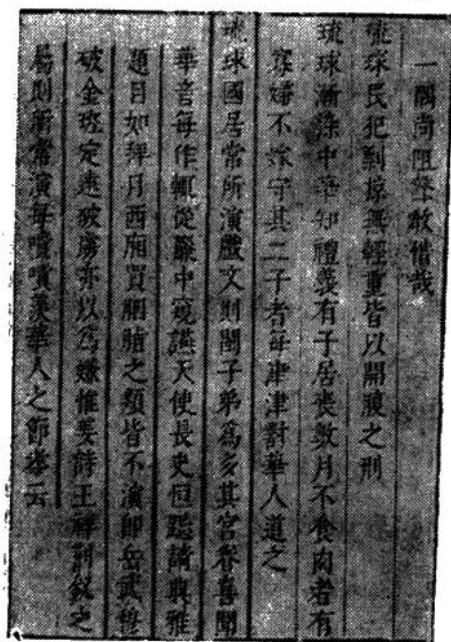 一關尚阻聲敢借哉
琉球民犯剽掠無輕重皆以開腹之刑
琉球漸染中華知禮義有子居喪數月不食肉者有
寡婦不嫁守其二子者每津津對華人道之
琉球國居常所演戲文則閩子弟爲多其宮眷喜聞
華音每作輒從簾中窺讌天使長史恒跽請典雅
題目如拜月西廂買胭脂之類皆不演即岳武穆
破金班定遠破虜亦以爲嫌惟姜詩王祥荊釵之
屬則所常演每嘖嘖羨華人之節孝云